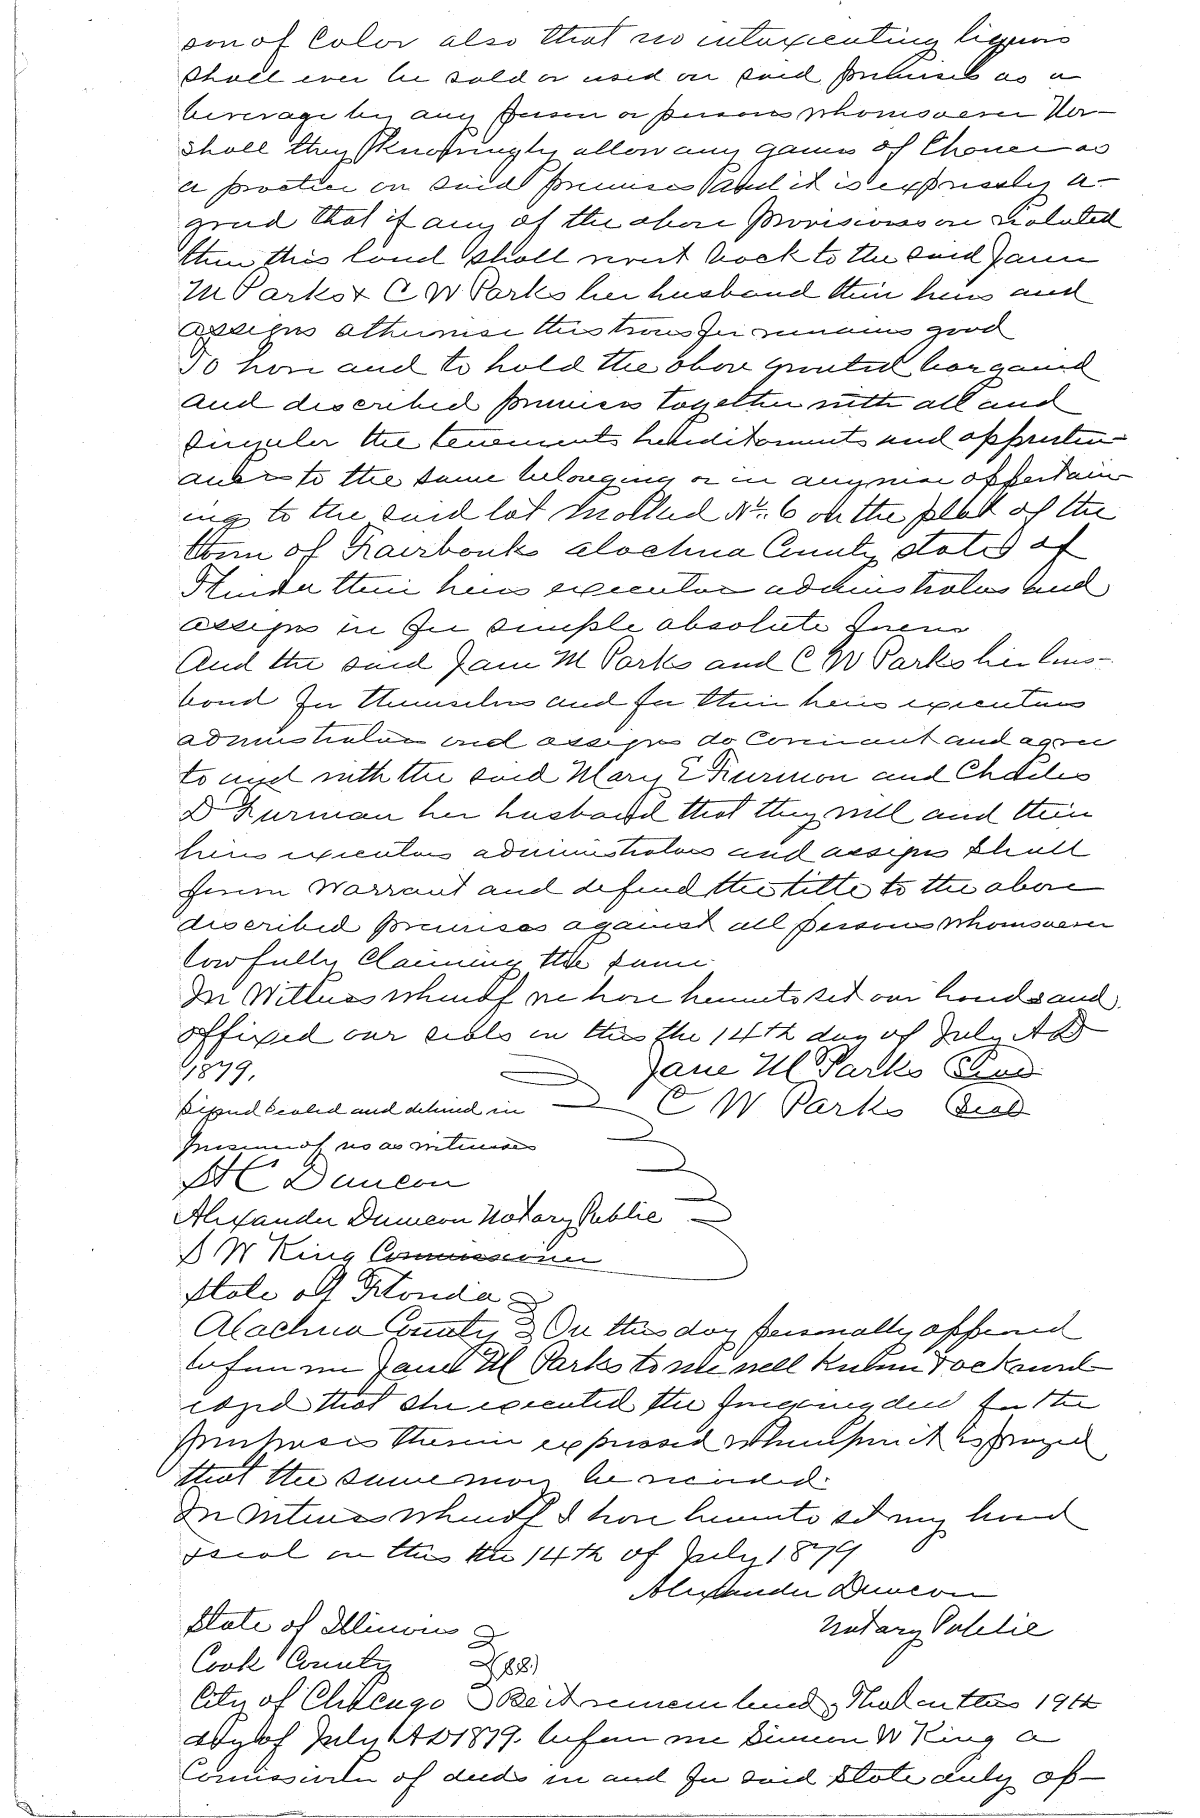 son of Color also that no intoxicating liquors
shall ever be sold or used on said premises as a
beverage by any person or persons whomsoever Nor-
shall they knowingly allow any games of Chance as
a practice on said premises and it is expressly a-
greed that if any of the above provisions are violated
then this land shall revert back to the said Jane
M Parks & C W Parks her husband their heirs and
assigns otherwise this transfer remains good
To have and to hold the above granted bargained
and described premises together with all and
singular the tenements hereditaments and appurten-
ances to the same belonging or in anywise appertain-
ing to the said lot marked No. 6 on the plat of the
town of Fairbanks Alachua County state of
Florida their heirs executors administrators and
assigns in fee simple absolute forever
And the said Jane M Parks and C W Parks her hus-
band for themselves and for their heirs executors
administrators and assigns do Covenant and agree
to and with the said Mary E Furman and Charles
D Furman her husband that they will and their
heirs executors administrators and assigns shall
forever Warrant and defend the title to the above
described premises against all persons whomsoever
lawfully Claiming the same.
In Witness whereof we have hereunto set our hands and
affixed our seals on this the 14th day of July AD
1879. Jane M Parks Seal
Signed sealed and delivered in C W Parks Seal
presence of us as witnesses
H C Duncan
Alexander Duncan Notary Public
S W King Commissioner
State of Florida
Alachua County On this day personally appeared
before me Jane M Parks to me well known & acknowl-
edged that she executed the foregoing deed for the
purposes therein expressed whereupon it is prayed
that the same may be recorded.
In witness whereof I have hereunto set my hand
& seal on this the 14th of July 1879
Alexander Duncan
State of Illinois Notary Public
Cook County (SS)
City of Chicago Be it remembered, That on this 19th
day of July AD 1879. before me Simeon W King a
Comissioner of deeds in and for said State duly ap-